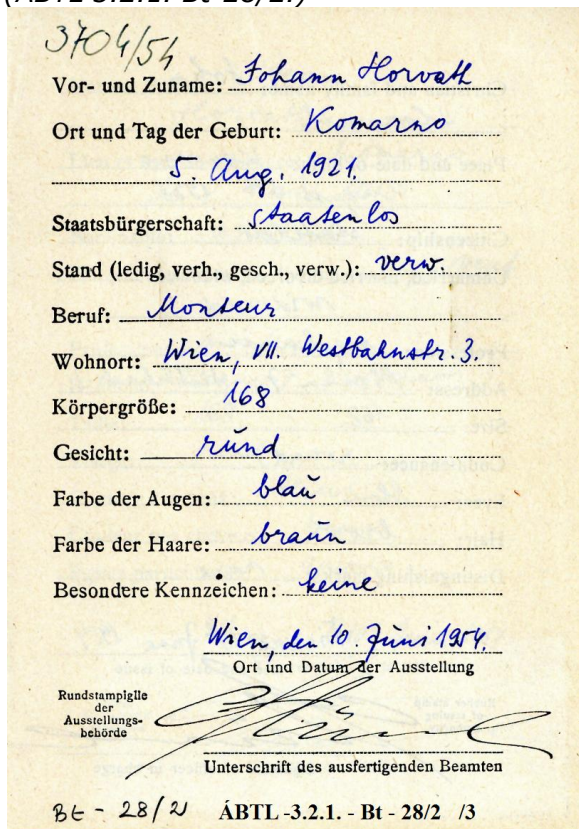 (ÁBTL 3.2.1. Bt-28/2.)
3704/54
Vor- und Zuname: Johann Horvath
Ort und Tag der Geburt: Komarno
5. Aug. 1921.
Staatsbürgerschaft: Staatenlos
Stand (ledig, verh., gesch., verw.): verw.
Beruf: Monteur
Wohnort: Wien, VII. Westbahnstr. 3.
Körpergröße: 168
Gesicht: rund
Farbe der Augen: blau
Farbe der Haare: braun
Besondere Kennzeichen: keine
Wien, den 10. Juni 1954.
Ort und Datum der Ausstellung
Rundstampiglie
der
Ausstellungs-
behörde
Unterschrift des ausfertigenden Beamten
Bt - 28/2
ÁBTL -3.2.1. - Bt - 28/2 /3